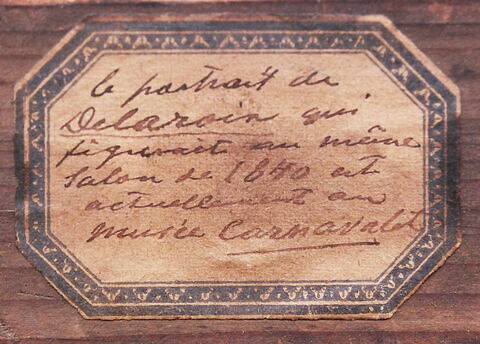 le portrait de
Delaroin qui
figurait au même
Salon de 1840 est
actuellement au
musée Carnavalet